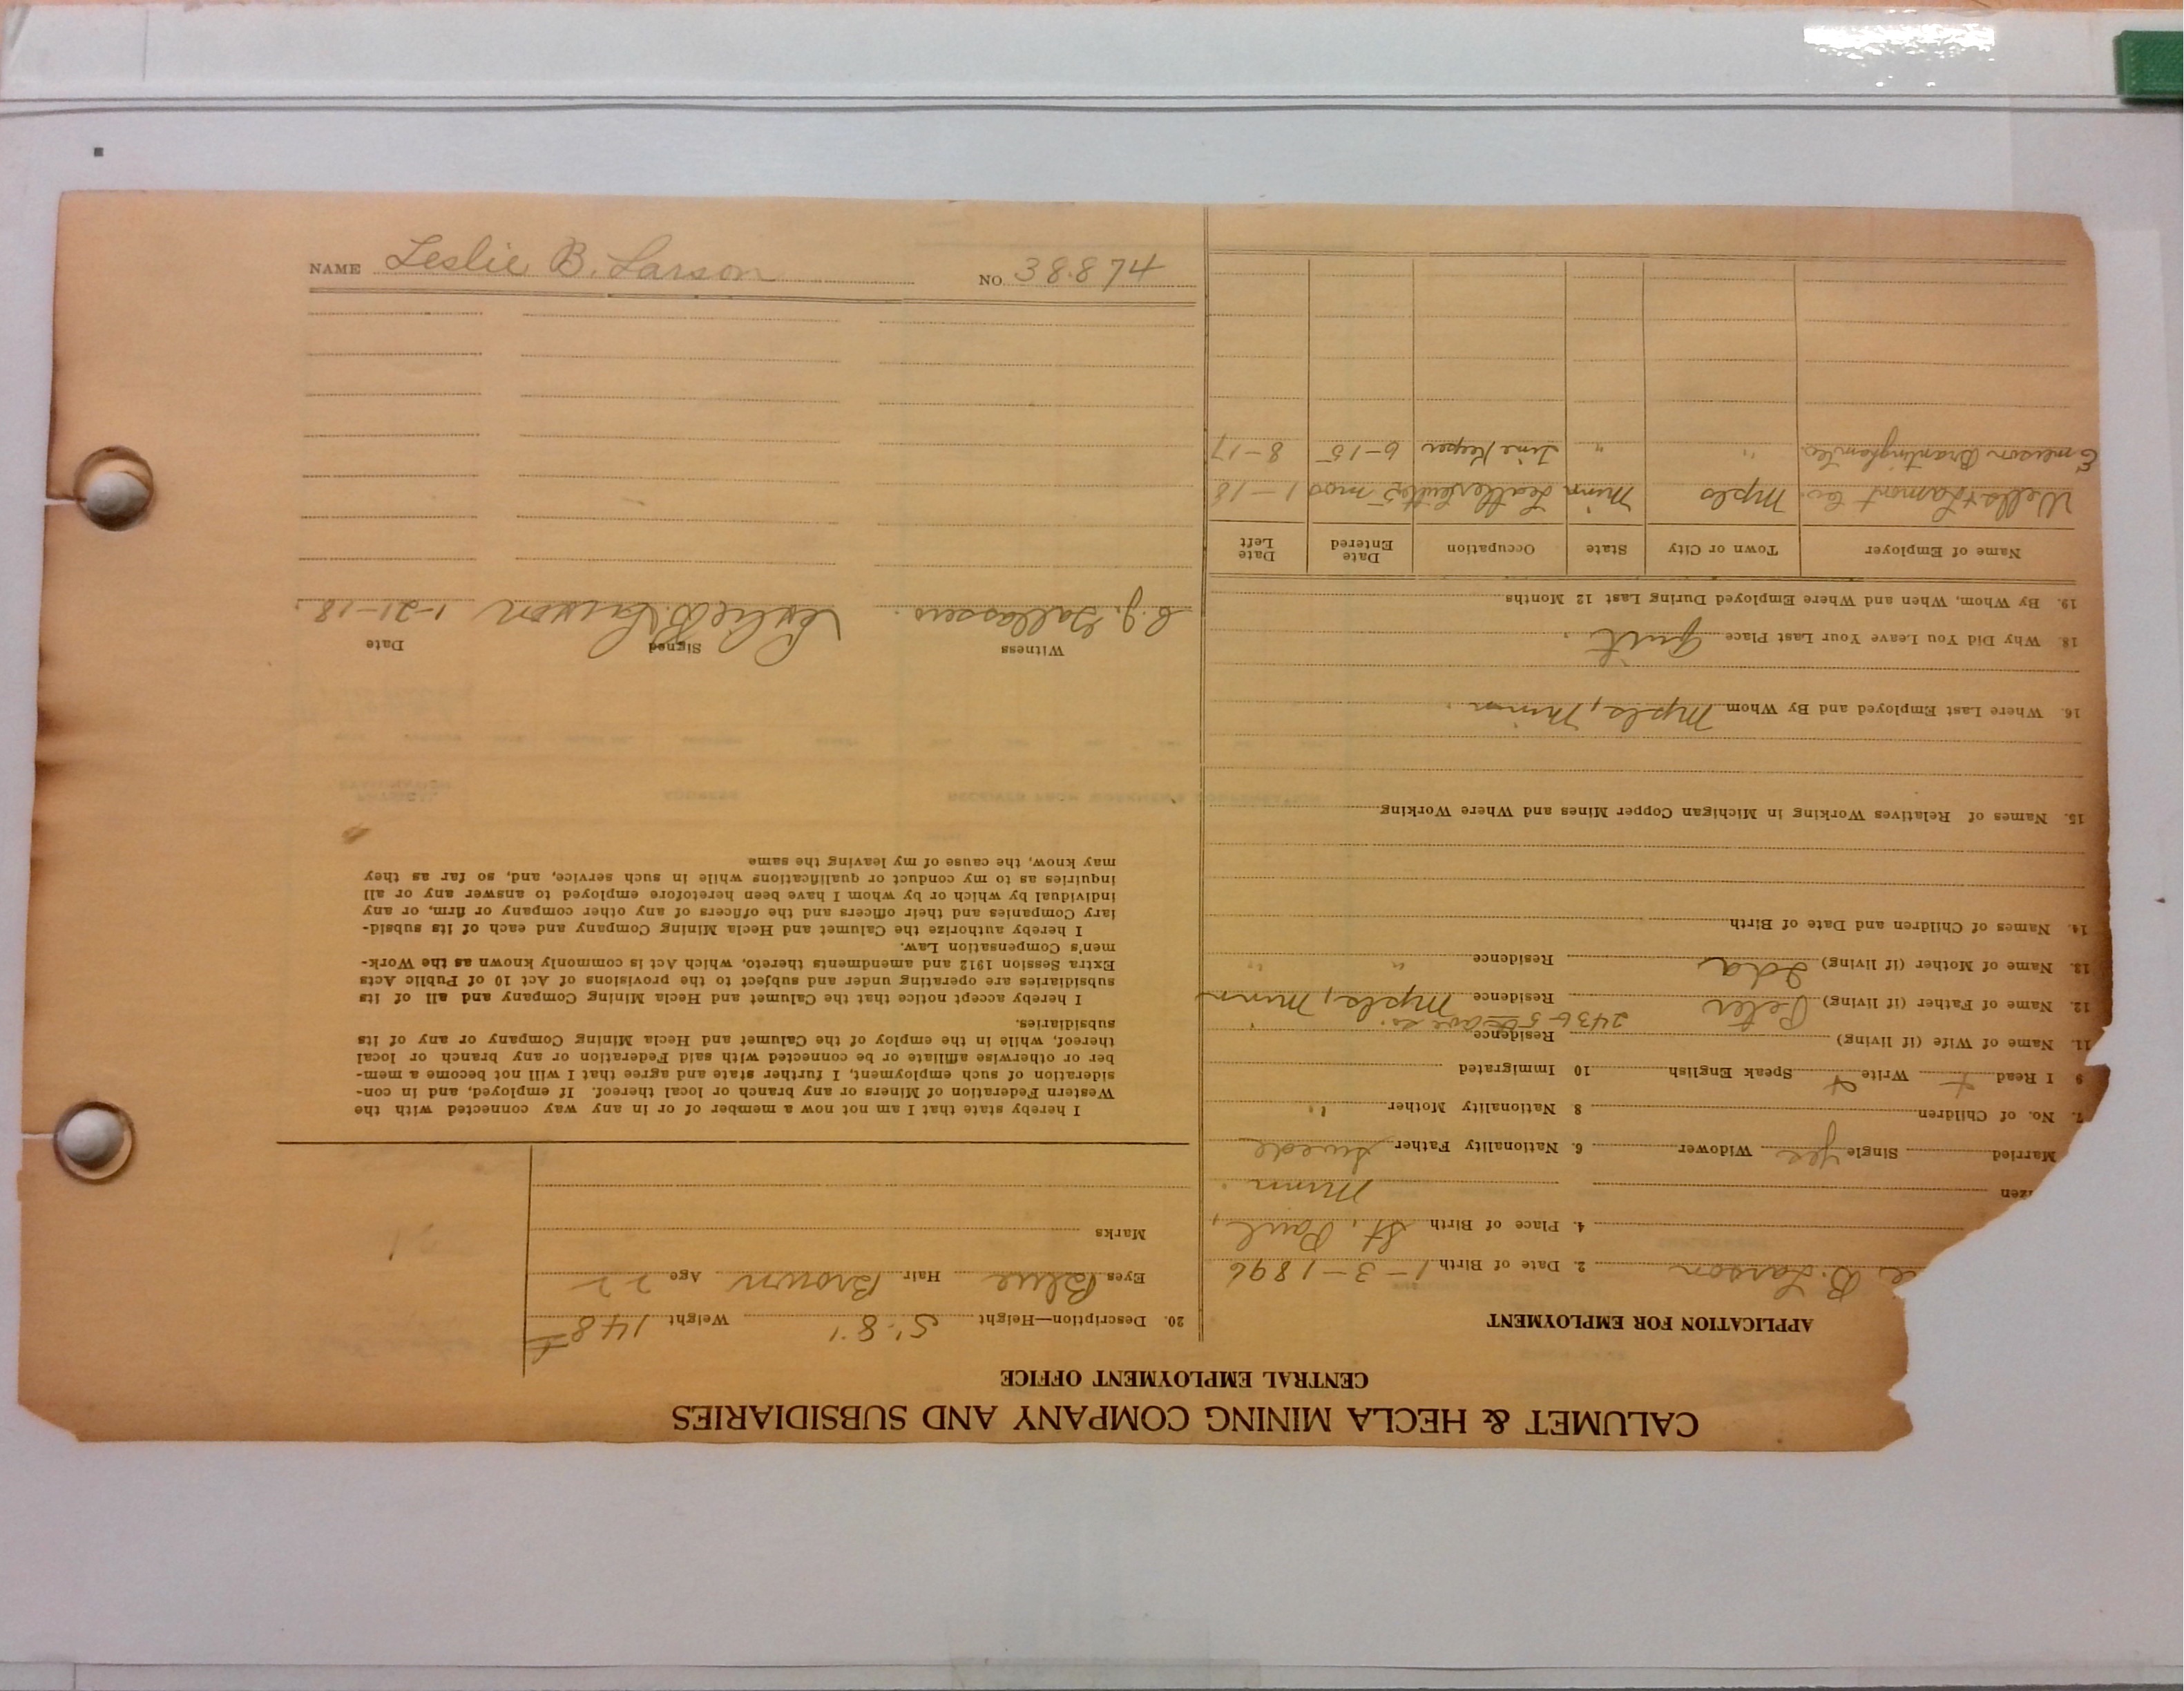 NAME Leslie B. Larson NO. 38874
CALUMET & HECLA MINING COMPANY AND SUBSIDIARIES
CENTRAL EMPLOYMENT OFFICE
APPLICATION FOR EMPLOYMENT
e B. Larson 2. Date of Birth 1-3-1896
4. Place of Birth St. Paul,
izen Minn
Married Single yes Widower 6. Nationality Father Swede
7. No. of Children 8 Nationality Mother "
9 I Read + Write + Speak English 10 Immigrated
11. Name of Wife (if living) Residence
2436-5th ave so.
12. Name of Father (if living) Peter Residence Mpls, Minn
13. Name of Mother (if living) Ida Residence " "
14. Names of Children and Date of Birth
15. Names of Relatives Working in Michigan Copper Mines and Where Working
16. Where Last Employed and By Whom Mpls, Minn.
18. Why Did You Leave Your Last Place Quit.
19. By Whom, When and Where Employed During Last 12 Months
Name of Employer Town or City State Occupation Date Entered Date Left
Wells & Lamont Co. Mpls Minn Leather 5 mos 1-18
Emerson Brantingham Co. " " Time Keeper 6-15 8-17
20. Description—Height 5'.8" Weight 148
Eyes Blue Hair Brown Age 22
Marks
I hereby state that I am not now a member of or in any way connected with the
Western Federation of Miners or any branch or local thereof. If employed, and in con-
sideration of such employment, I further state and agree that I will not become a mem-
ber or otherwise affiliate or be connected with said Federation or any branch or local
thereof, while in the employ of the Calumet and Hecla Mining Company or any of its
subsidiaries.
I hereby accept notice that the Calumet and Hecla Mining Company and all of its
subsidiaries are operating under and subject to the provisions of Act 10 of Public Acts
Extra Session 1912 and amendments thereto, which Act is commonly known as the Work-
men's Compensation Law.
I hereby authorize the Calumet and Hecla Mining Company and each of its subsid-
iary Companies and their officers and the officers of any other company or firm, or any
individual by which or by whom I have been heretofore employed to answer any or all
inquiries as to my conduct or qualifications while in such service, and, so far as they
may know, the cause of my leaving the same
Witness Signed Date
Leslie B. Larson 1-21-18.